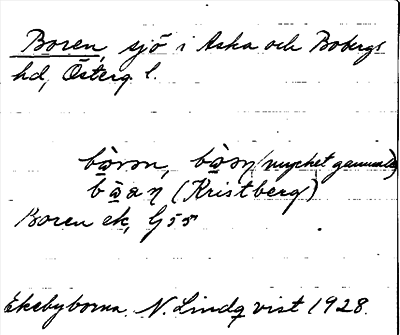 Boren, sjö i Aska och Bobergs
hd, Österg. l.
bò̱rən, bò̱əŋ (mycket gammalt)
bò̱aŋ (Kristberg)
Boren ek, G 55
Ekebyborna. N. Lindqvist 1928.